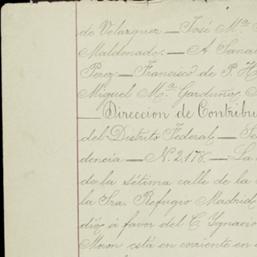 de Velazquez — José Ma.
Maldonado. — A. Sana
Perez — Francisco de P. H
Miguel Ma. Garduño.
Direccion de Contribu
del Distrito Federal. —
dencia — N. 2178. — La
de la sétima calle de la
la Sra. Refugio Madrid,
diz á favor del C. Ygnacio
Moron está en corriente en